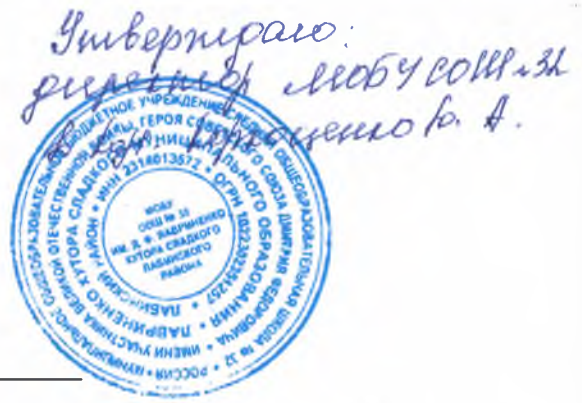 Утверждаю:
директор МОБУ СОШ №32
Ю. А.
МУНИЦИПАЛЬНОЕ ОБЩЕОБРАЗОВАТЕЛЬНОЕ БЮДЖЕТНОЕ УЧРЕЖДЕНИЕ СРЕДНЯЯ ОБЩЕОБРАЗОВАТЕЛЬНАЯ ШКОЛА № 32 • РОССИЯ •
ИМЕНИ УЧАСТНИКА ВЕЛИКОЙ ОТЕЧЕСТВЕННОЙ ВОЙНЫ, ГЕРОЯ СОВЕТСКОГО СОЮЗА ДМИТРИЯ ФЕДОРОВИЧА
ЛАВРИНЕНКО ХУТОРА СЛАДКОГО МУНИЦИПАЛЬНОГО ОБРАЗОВАНИЯ
ЛАБИНСКИЙ РАЙОН • ИНН 2314013572 • ОГРН
МОБУ
СОШ № 32
ИМ. Д. Ф. ЛАВРИНЕНКО
ХУТОРА СЛАДКОГО
ЛАБИНСКОГО
РАЙОНА